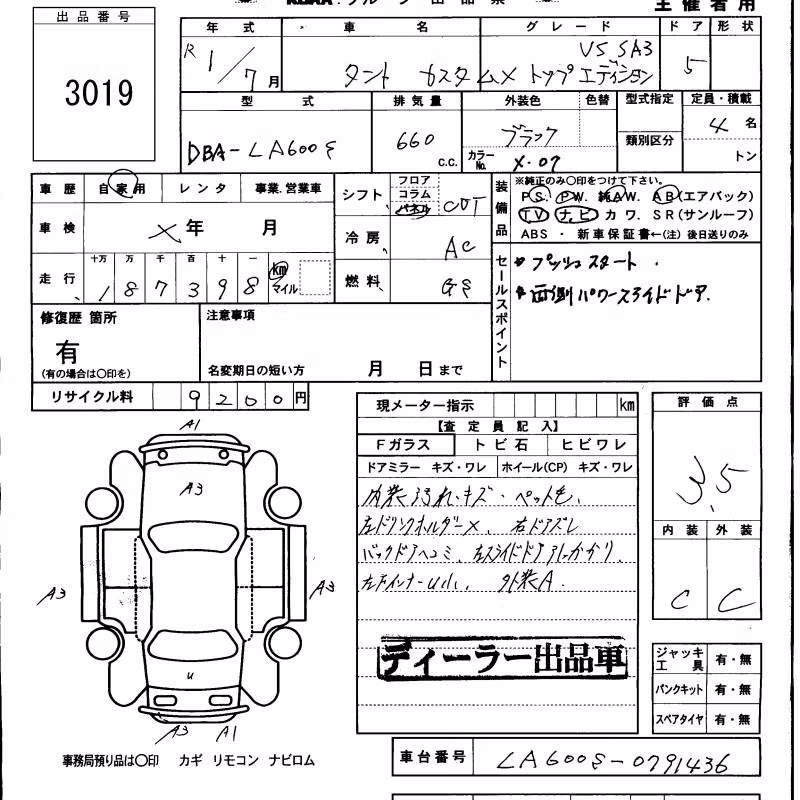 主催者用
出品番号
3019
年式 車名 グレード ドア 形状
R 1/7月 タント カスタムX トップエディション VS SA3 5
型式 排気量 外装色 色替 型式指定 定員・積載
DBA-LA600S 660 c.c. ブラック カラーNo. X-07 類別区分 4名
トン
車歴 自家用 レンタ 事業.営業車
車検 ×年 月
走行 十万 万 千 百 十 一
187398 km マイル
シフト フロア コラム パネル CVT
冷房 AC
燃料 GS
装備品
※純正のみ○印をつけて下さい。
PS. PW. 純AW. AB(エアバック)
TV ナビ カワ. SR(サンルーフ)
ABS ・ 新車保証書←(注) 後日送りのみ
セールスポイント
* プッシュスタート.
* 両側パワースライドドア.
修復歴 箇所
有
(有の場合は○印を)
注意事項
名変期日の短い方 月 日まで
リサイクル料 9200円
現メーター指示 km
【査 定 員 記 入】
Fガラス トビ石 ヒビワレ
ドアミラー キズ・ワレ ホイール(CP) キズ・ワレ
内装汚れ・キズ・ペット毛.
左ドリンクホルダー×. 右ドアズレ
バックドアヘコミ. 左スライドドア引っかかり.
左インナーU小. 外装A.
ディーラー出品車
評価点
3.5
内装 外装
C C
ジャッキ工具 有・無
パンクキット 有・無
スペアタイヤ 有・無
A1
A3
A3
A3
U
A3 A1
事務局預り品は○印 カギ リモコン ナビロム
車台番号 LA600S-0791436